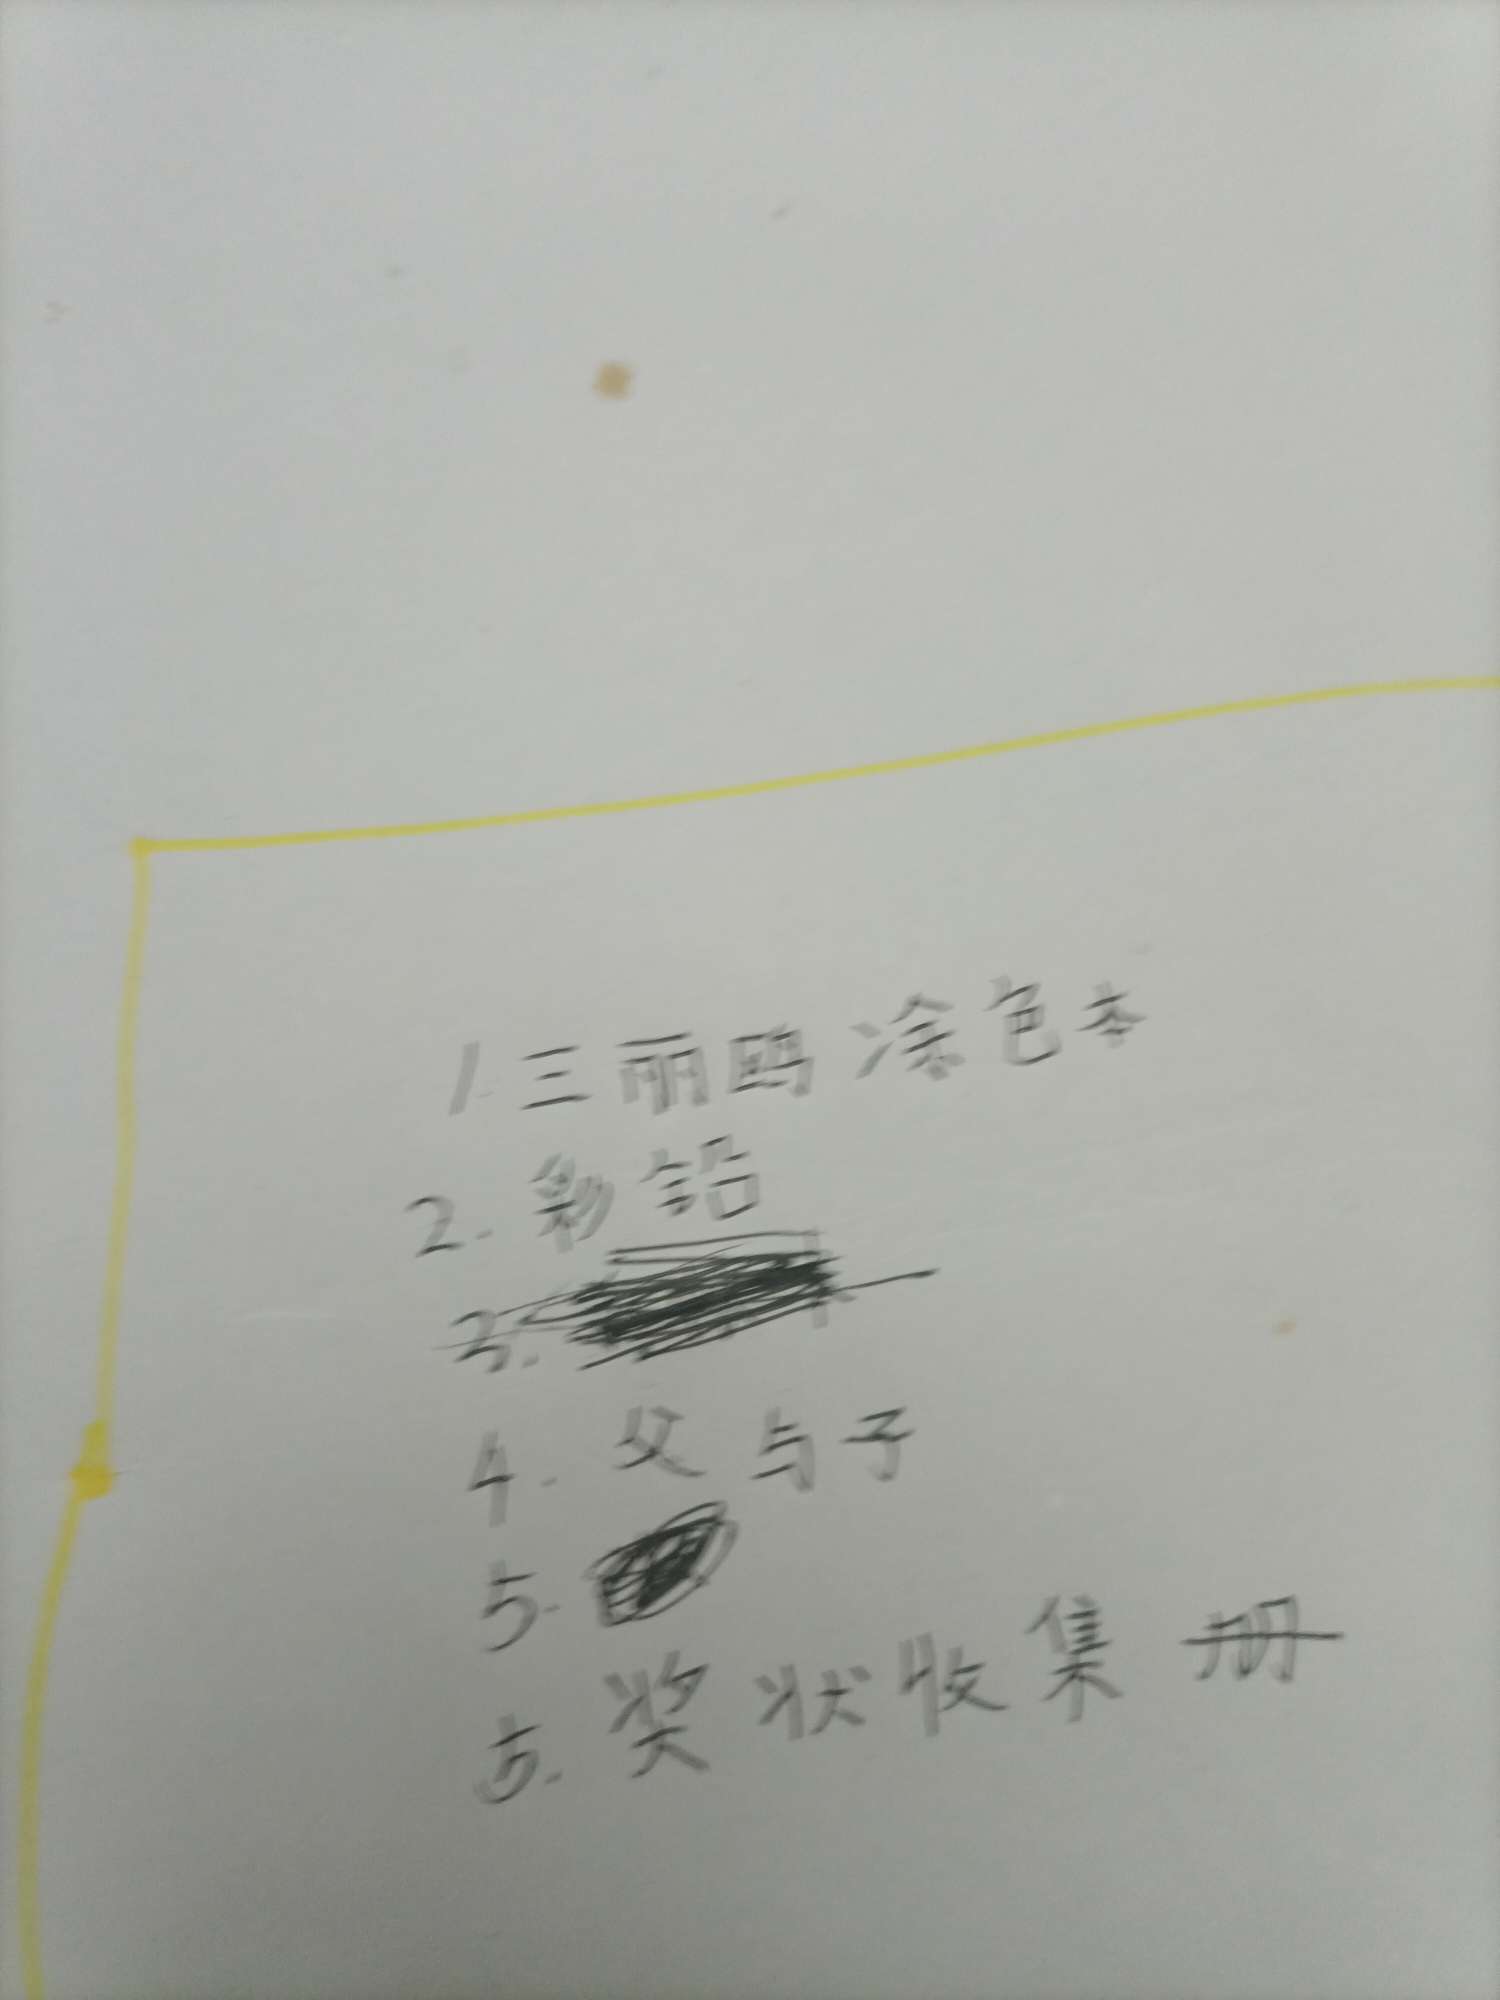 1.三丽鸥涂色本
2.彩铅
3.
4.父与子
5.
5.奖状收集册